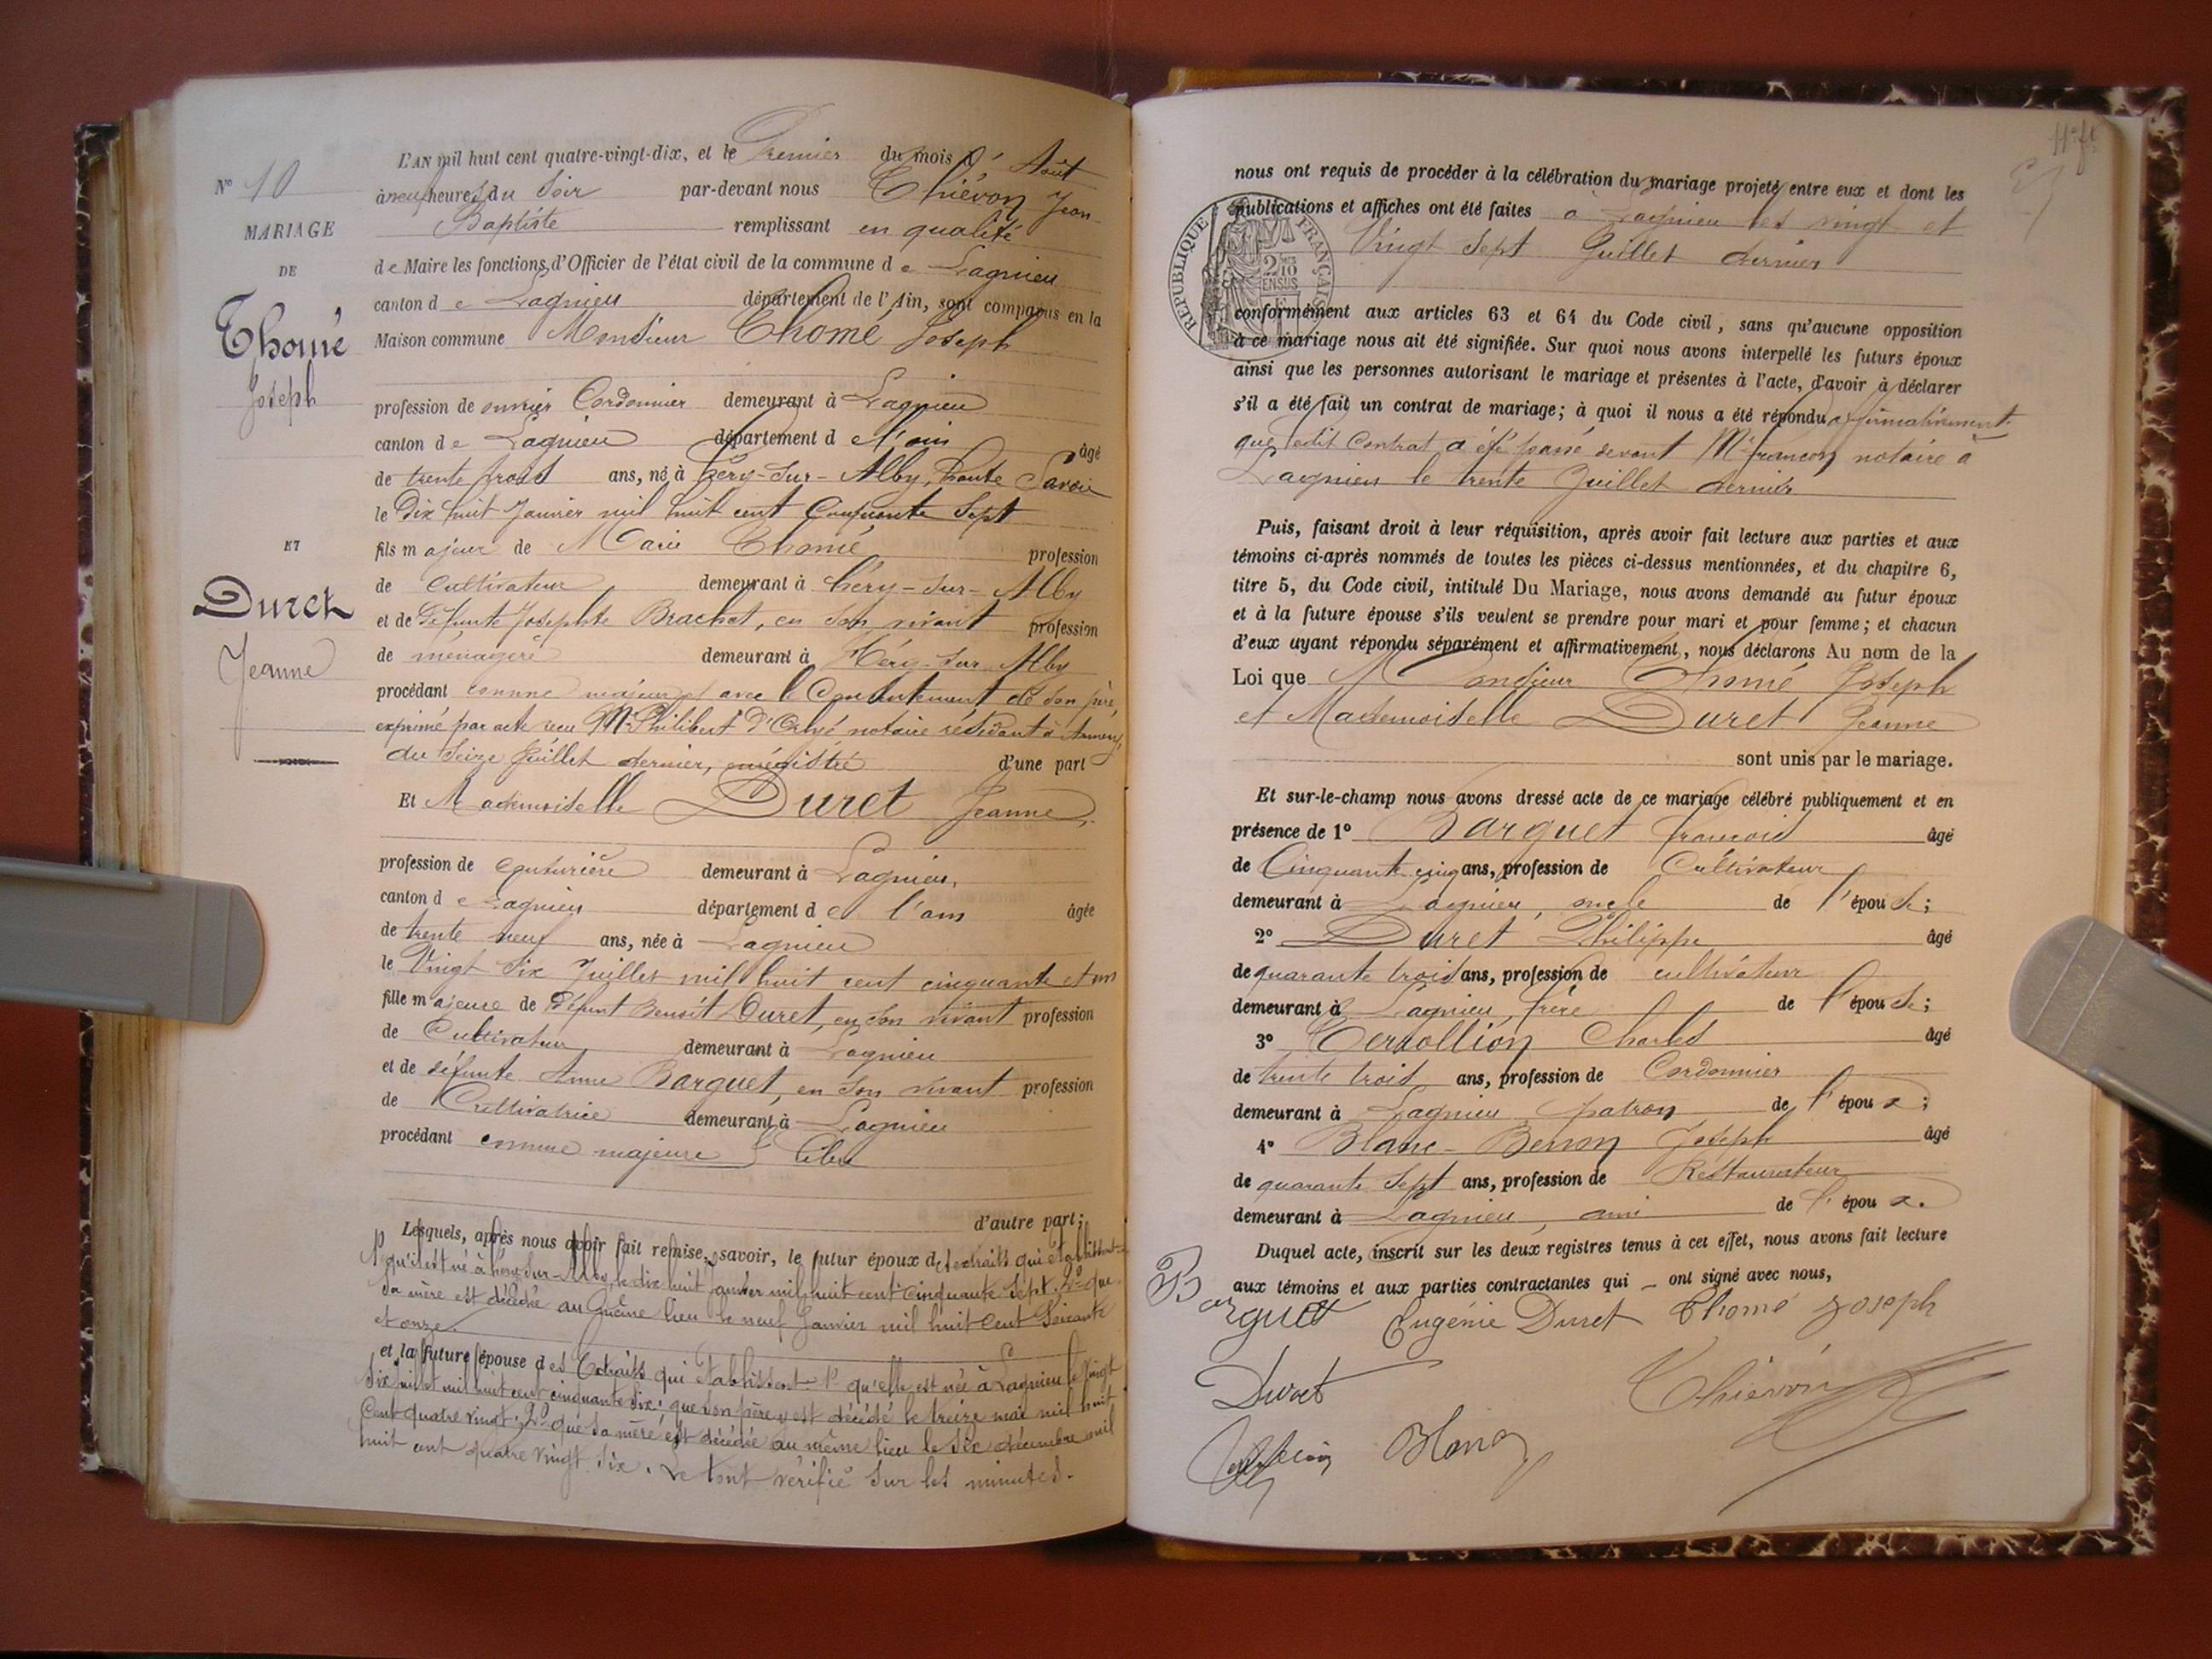 N° 10
MARIAGE
DE
Thomé
Joseph
ET
Duret
Jeanne
L'AN mil huit cent quatre-vingt-dix, et le Premier du mois d'Août
à neuf heures du Soir par-devant nous Thiévon Jean
Baptiste remplissant en qualité
de Maire les fonctions d'Officier de l'état civil de la commune de Lagnieu
canton de Lagnieu département de l'Ain, sont comparus en la
Maison commune Monsieur Thomé Joseph
profession de ouvrier Cordonnier demeurant à Lagnieu
canton de Lagnieu département de l'ain âgé
de trente trois ans, né à héry-sur-Alby, haute Savoie
le Dix huit Janvier mil huit cent Cinquante Sept
fils majeur de Marie Thomé profession
de Cultivateur demeurant à héry-sur-Alby
et de Défunte Josephte Brachet, en son vivant profession
de ménagère demeurant à Héry-sur Alby
procédant comme majeur et avec le Consentement de son père,
exprimé par acte reçu Mr Philibert notaire résidant à Annecy,
du Seize Juillet dernier, enrégistré d'une part
Et Mademoiselle Duret Jeanne,
profession de Couturière demeurant à Lagnieu,
canton de Lagnieu département de l'ain âgée
de trente neuf ans, née à Lagnieu
le Vingt Six Juillet mil huit cent cinquante et un
fille majeure de Défunt Benoît Duret, en son vivant profession
de Cultivateur demeurant à Lagnieu
et de défunte Anne Barguet, en son vivant profession
de Cultivatrice demeurant à Lagnieu
procédant comme majeure & libre
d'autre part;
Lesquels, après nous avoir fait remise, savoir, le futur époux des extraits qui établissent
1° qu'il est né à héry-sur-Alby, le dix huit janvier mil huit cent cinquante Sept. 2° que
sa mère est décédée au même lieu le neuf Janvier mil huit cent Soixante
et onze.
et la future épouse des Extraits qui établissent 1° qu'elle est née à Lagnieu le Vingt
six juillet mil huit cent cinquante six; que son père y est décédé le treize mai mil huit
Cent quatre vingt; 2° que sa mère est décédée au même lieu le six décembre mil
huit cent quatre vingt six. Le tout vérifié sur les minutes.
11e ft
nous ont requis de procéder à la célébration du mariage projeté entre eux et dont les
publications et affiches ont été faites à Lagnieu les vingt et
Vingt Sept Juillet dernier
RÉPUBLIQUE FRANÇAISE
2/10 EN SUS
conformément aux articles 63 et 64 du Code civil, sans qu'aucune opposition
à ce mariage nous ait été signifiée. Sur quoi nous avons interpellé les futurs époux
ainsi que les personnes autorisant le mariage et présentes à l'acte, d'avoir à déclarer
s'il a été fait un contrat de mariage; à quoi il nous a été répondu affirmativement
que ledit Contrat a été passé devant Me francon notaire à
Lagnieu le trente Juillet dernier
Puis, faisant droit à leur réquisition, après avoir fait lecture aux parties et aux
témoins ci-après nommés de toutes les pièces ci-dessus mentionnées, et du chapitre 6,
titre 5, du Code civil, intitulé Du Mariage, nous avons demandé au futur époux
et à la future épouse s'ils veulent se prendre pour mari et pour femme; et chacun
d'eux ayant répondu séparément et affirmativement, nous déclarons Au nom de la
Loi que Monsieur Thomé Joseph
et Mademoiselle Duret Jeanne
sont unis par le mariage.
Et sur-le-champ nous avons dressé acte de ce mariage célébré publiquement et en
présence de 1° Barguet françois âgé
de Cinquante cinq ans, profession de Cultivateur
demeurant à Lagnieu, oncle de l'épouse;
2° Duret Philippe âgé
de quarante trois ans, profession de cultivateur
demeurant à Lagnieu, frère de l'épouse;
3° Charles âgé
de trente trois ans, profession de Cordonnier
demeurant à Lagnieu patron de l'époux;
4° Blanc-Berron Joseph âgé
de quarante Sept ans, profession de Restaurateur
demeurant à Lagnieu, ami de l'époux.
Duquel acte, inscrit sur les deux registres tenus à cet effet, nous avons fait lecture
aux témoins et aux parties contractantes qui – ont signé avec nous,
Barguet Eugénie Duret Thomé Joseph
Duret Thiévon
Blanc